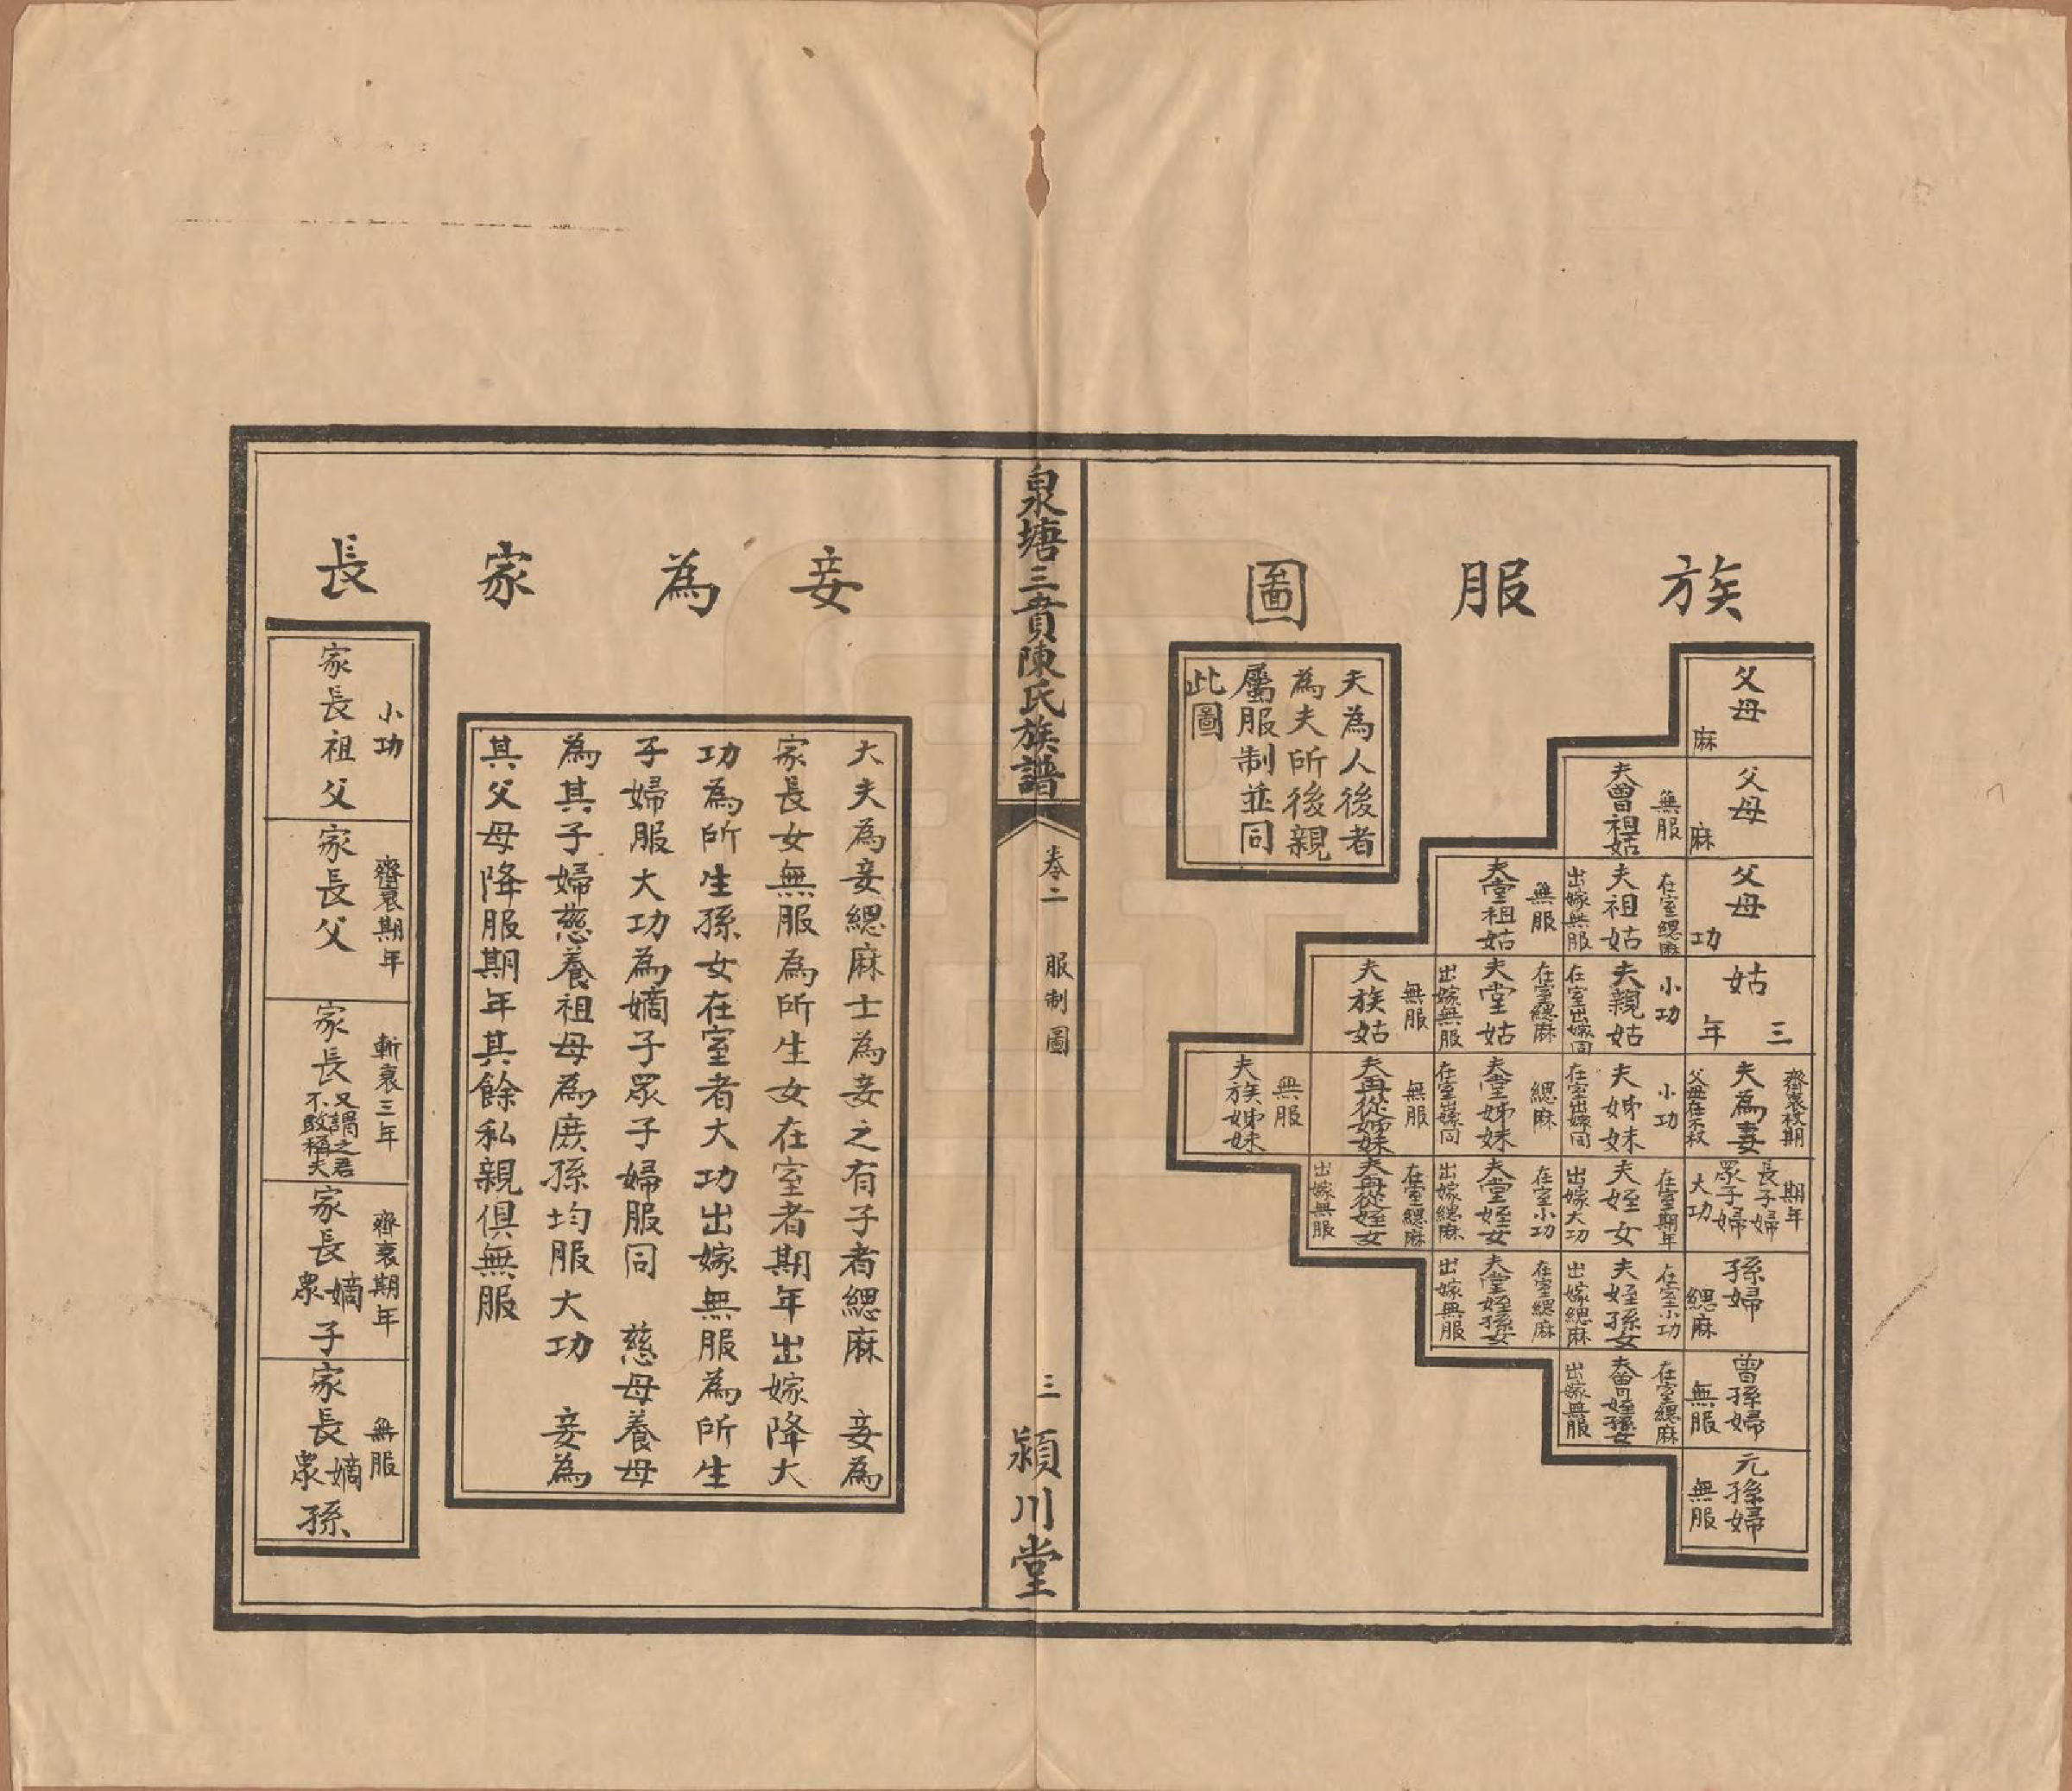 族服圖
父母
麻
父母
麻
父母
功
姑
三
年
齊衰杖期
夫為妻
父母在不杖
期年
長子婦
眾子婦
大功
孫婦
緦麻
曾孫婦
無服
元孫婦
無服
無服
夫曾祖姑
在室緦麻
夫祖姑
出嫁無服
小功
夫親姑
在室出嫁同
小功
夫姊妹
在室出嫁同
在室期年
夫姪女
出嫁大功
在室小功
夫姪孫女
出嫁緦麻
在室緦麻
夫曾姪孫女
出嫁無服
無服
夫堂祖姑
在室緦麻
夫堂姑
出嫁無服
緦麻
夫堂姊妹
在室出嫁同
在室小功
夫堂姪女
出嫁緦麻
在室緦麻
夫堂姪孫女
出嫁無服
無服
夫族姑
無服
夫再從姊妹
在室緦麻
夫再從姪女
出嫁無服
無服
夫族姊妹
夫為人後者
為夫所後親
屬服制並同
此圖
泉塘三賁陳氏族譜
卷二
服制圖
三
潁川堂
妾為家長
大夫為妾緦麻士為妾之有子者緦麻 妾為
家長女無服為所生女在室者期年出嫁降大
功為所生孫女在室者大功出嫁無服為所生
子婦服大功為嫡子眾子婦服同 慈母養母
為其子婦慈養祖母為庶孫均服大功 妾為
其父母降服期年其餘私親俱無服
小功
家長祖父
齊衰期年
家長父
斬衰三年
家長
又謂之君
不敢稱夫
齊衰期年
家長嫡眾子
無服
家長嫡眾孫